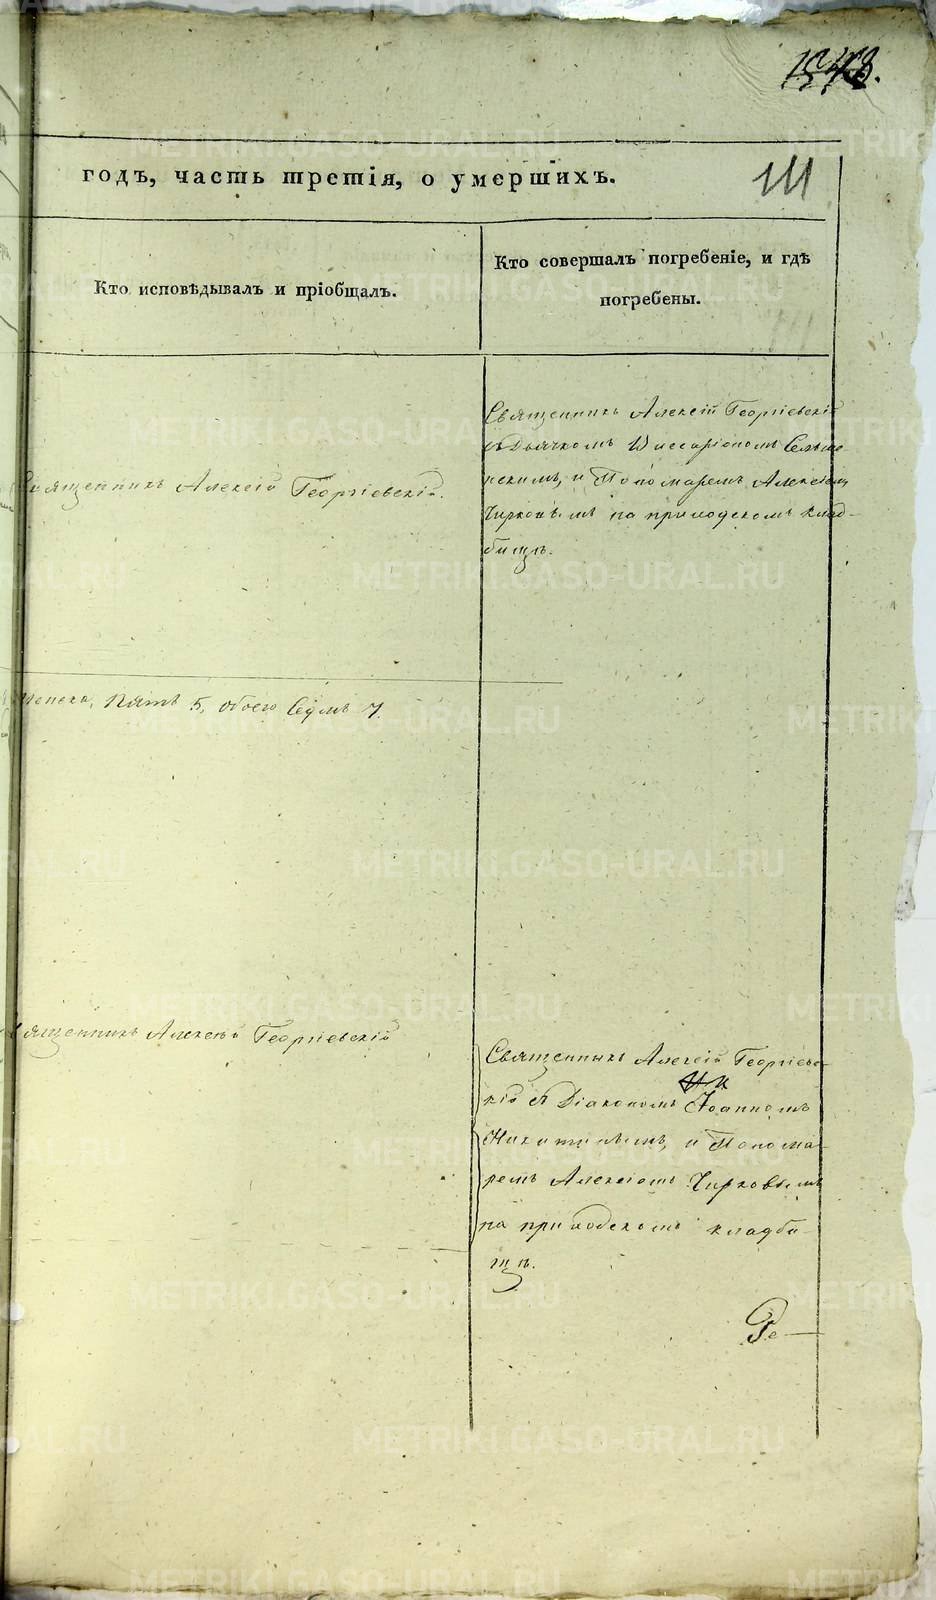 годъ, часть третія, о умершихъ.
111
Кто исповѣдывалъ и пріобщалъ.
Кто совершалъ погребеніе, и гдѣ
погребены.
Священникъ Алексій Георгіевскій.
Священникъ Алексій Георгіевскій
съ Дьячкомъ Виссаріономъ
и Пономаремъ Алексіемъ
Чирковымъ на приходскомъ клад-
бищѣ.
женска, пять 5, обоего Седмь 7.
Священникъ Алексѣй Георгіевскій
Священникъ Алексій Георгіевс-
кій съ Діакономъ Іоанномъ
Никитинымъ, и Понома-
ремъ Алексіемъ Чирковымъ
на приходскомъ кладби-
щѣ.
Ре-
METRIKI.GASO-URAL.RU